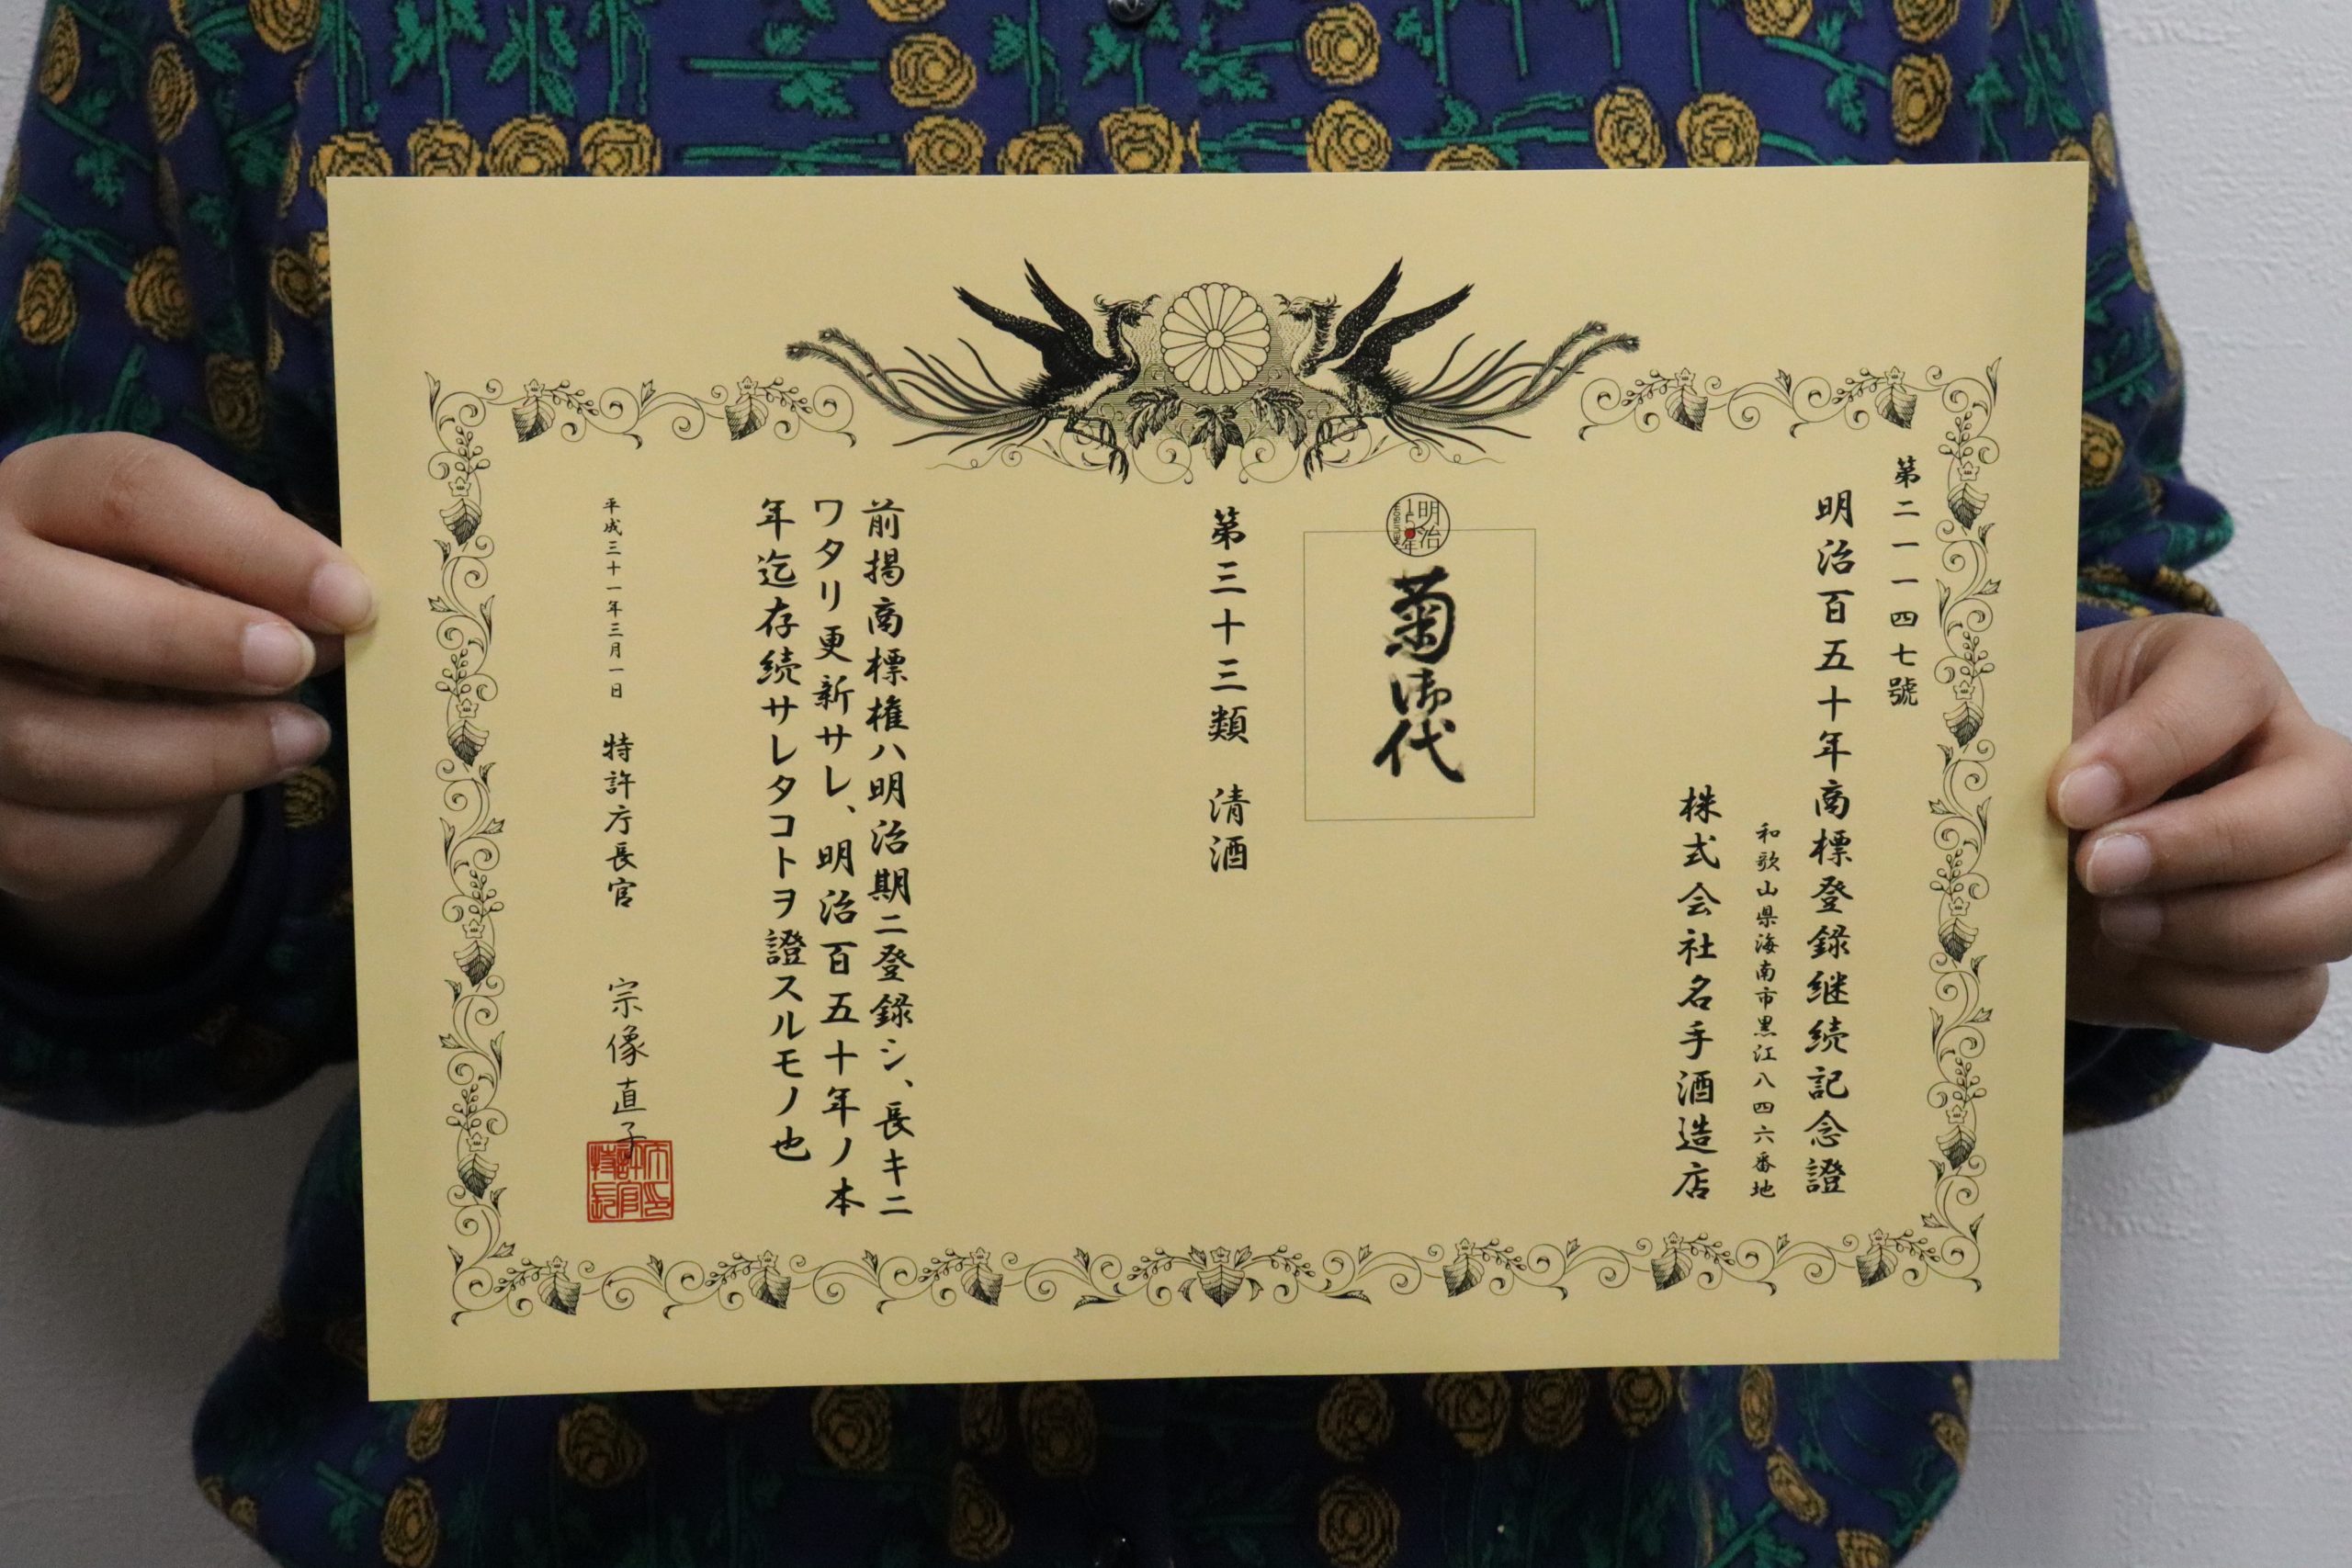 第二一一一四七號
明治百五十年商標登録継続記念證
和歌山県海南市黒江八四六番地
株式会社名手酒造店
明治
150年
菊御代
第三十三類 清酒
前掲商標権ハ明治期ニ登録シ、長キニ
ワタリ更新サレ、明治百五十年ノ本
年迄存続サレタコトヲ證スルモノ也
平成三十一年三月一日 特許庁長官 宗像直子